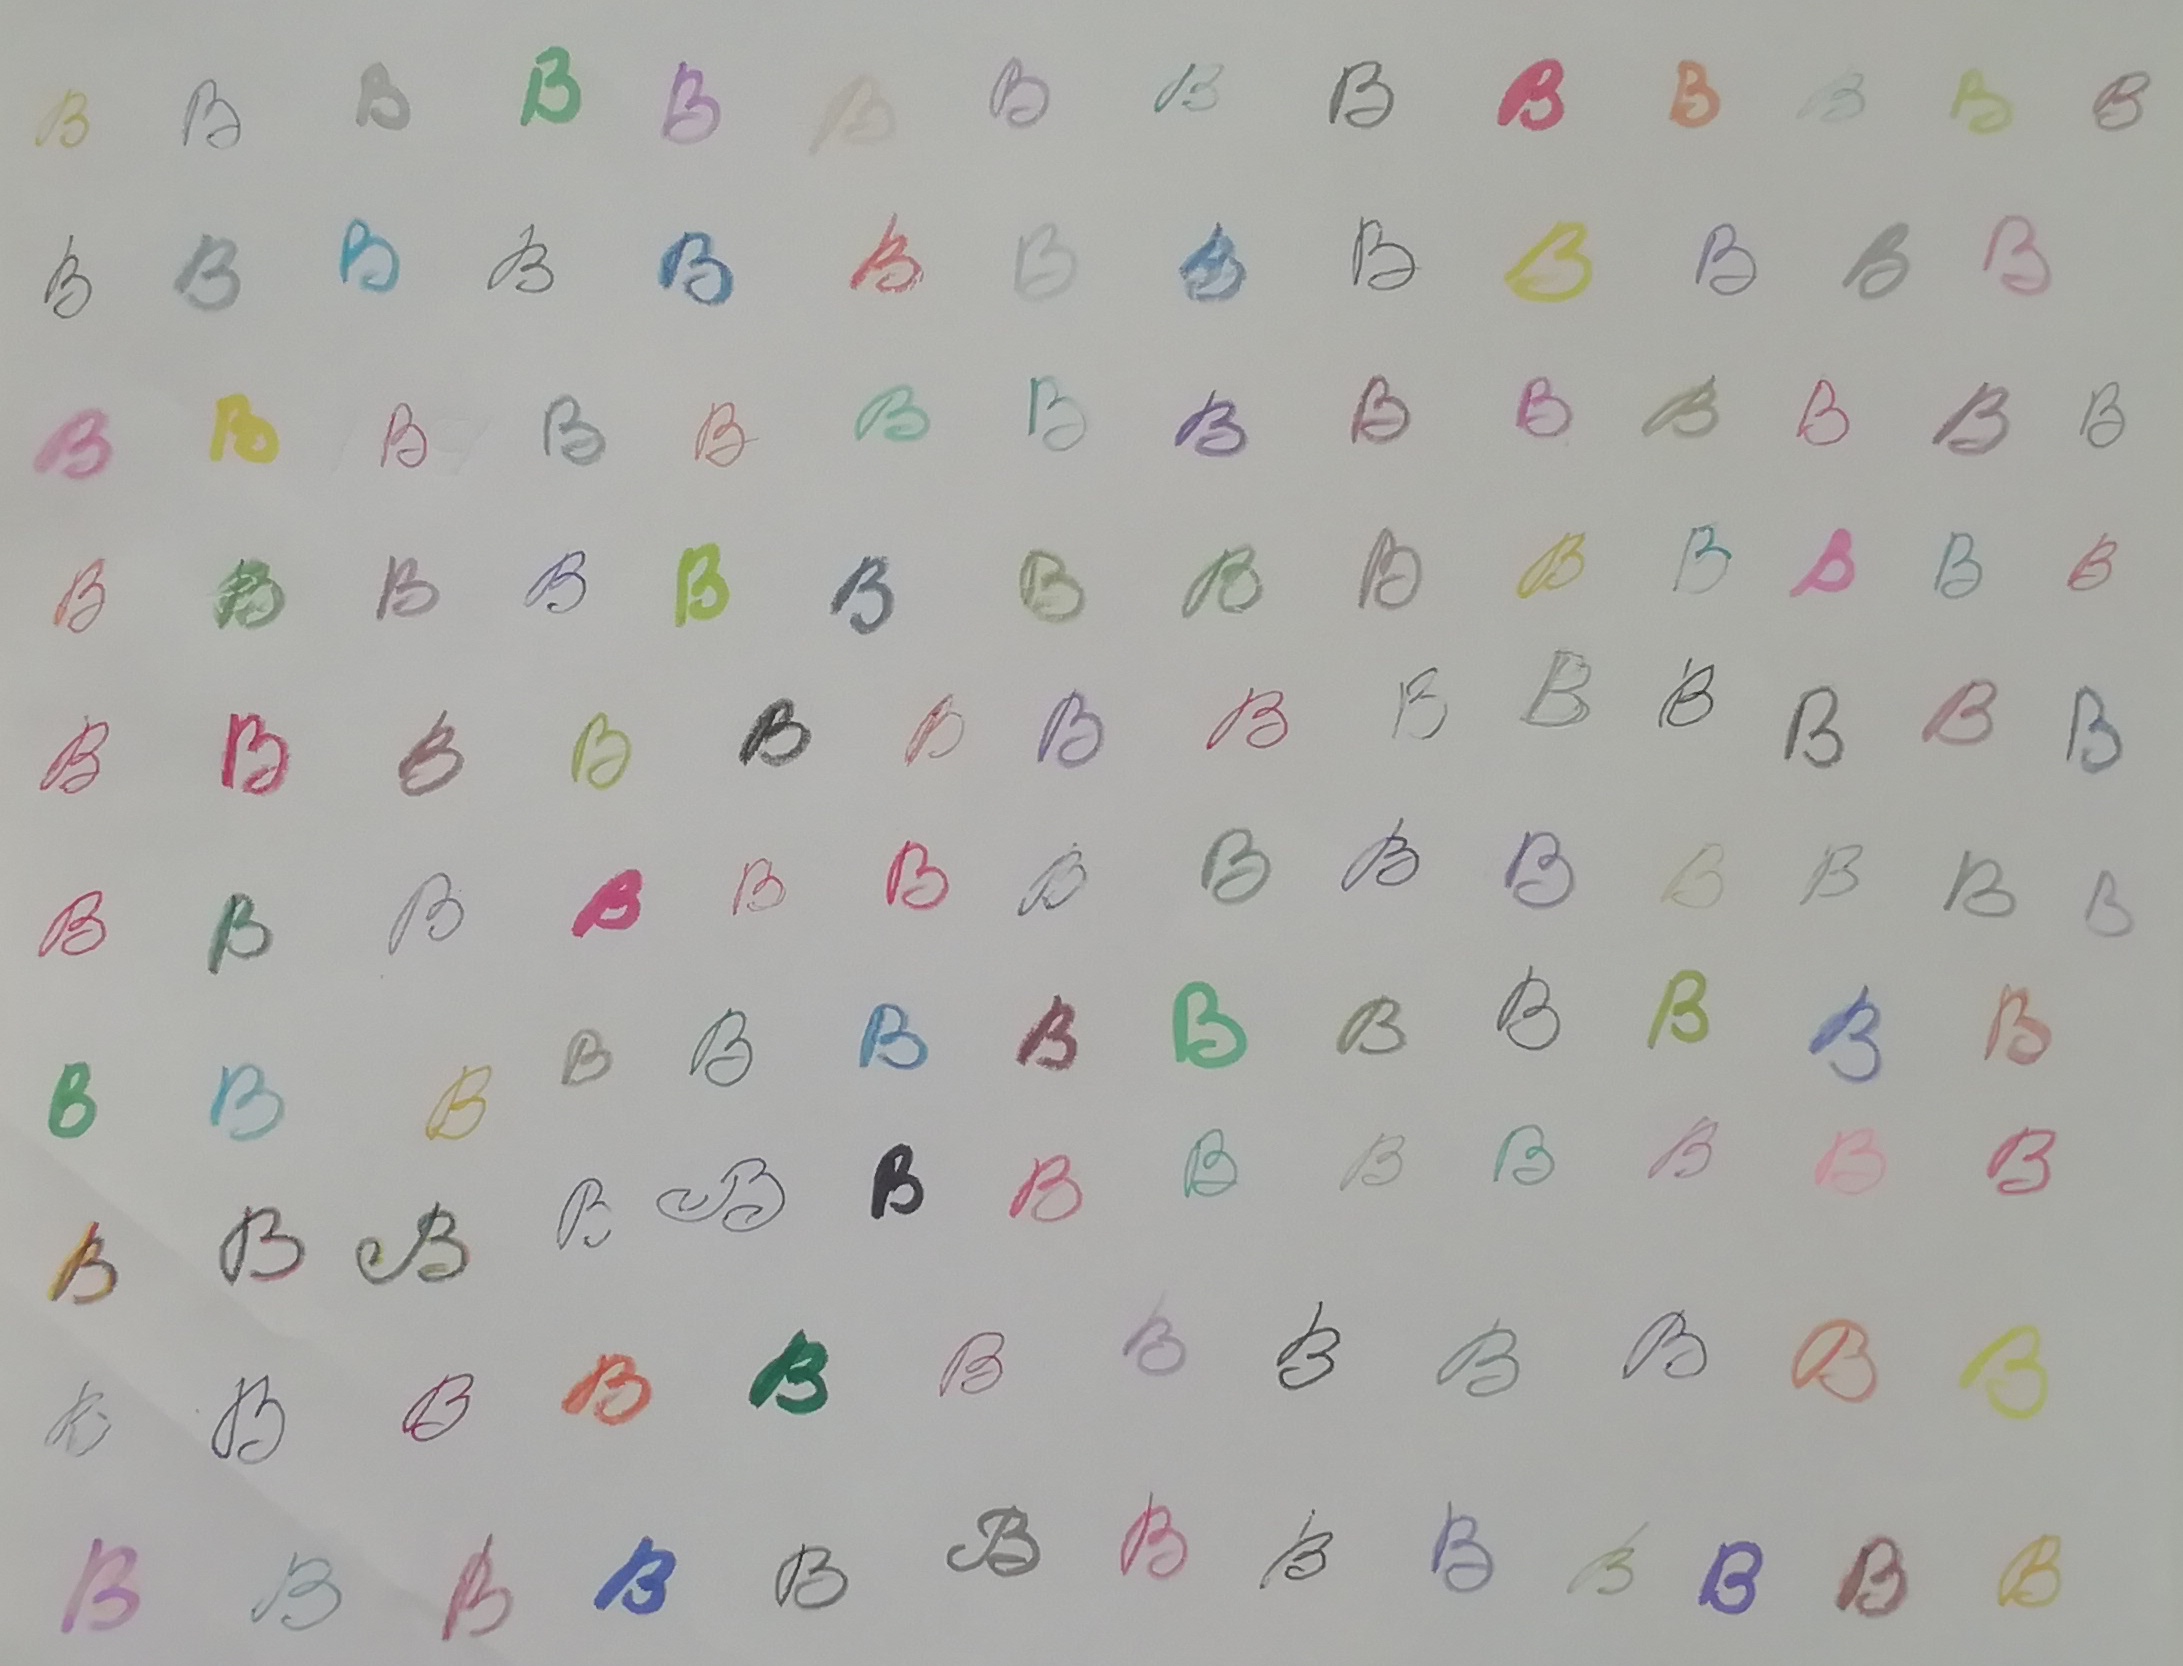 B B B B B B B B B B B B B B
B B B B B B B B B B B B B
B B B B B B B B B B B B B B
B B B B B B B B B B B B B B
B B B B B B B B B B B B B B
B B B B B B B B B B B B B B
B B B B B B B B B B B B B
B B B B B B B B B B B B B
B B B B B B B B B B B B
B B B B B B B B B B B B B